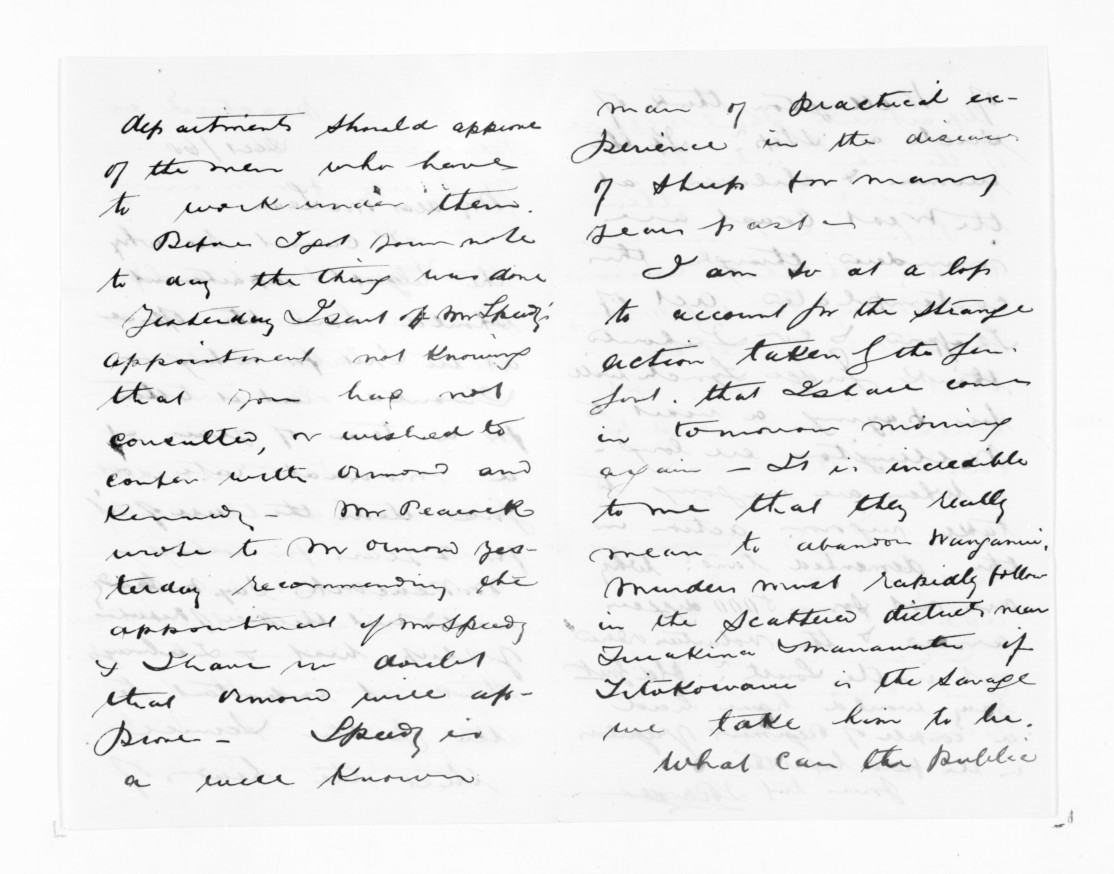 departments should approve
of the men who have
to work under them.
Before I got your note
to day the thing was done
Yesterday I sent off Mr Speedy's
appointment not knowing
that you had not
consulted, or wished to
confer with Ormond and
Kennedy - Mr Peacock
wrote to Mr Ormond yes-
terday recommending the
appointment of Mr Speedy
& I have no doubt
that Ormond will ap-
prove - Speedy is
a well known
man of practical ex-
perience in the disease
of Sheep for many
years past -
I am so at a loss
to account for the strange
action taken by the Gen.
Govt. that I shall come
in tomorrow morning
again - It is incredible
to me that they really
mean to abandon Wanganui.
Murders must rapidly follow
in the scattered districts near
Turakina & Manawatu if
Titokowaru is the savage
we take him to be.
What can the public